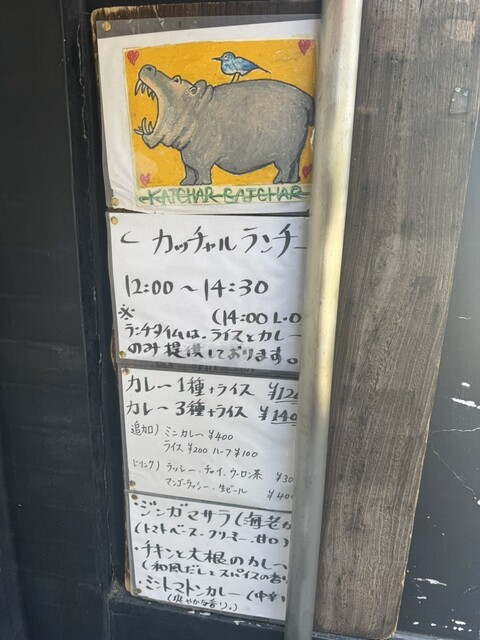 KATCHAR BATCHAR
カッチャルランチ
12:00〜14:30
※ (14:00 L.O
ランチタイムは、ライスとカレー
のみ提供しております。
カレー1種+ライス ¥12
カレー3種+ライス ¥140
追加) ミニカレー ¥400
ライス ¥200 ハーフ ¥100
ドリンク) ラッシー・チャイ・ウーロン茶 ¥30
マンゴーラッシー・生ビール ¥40
・ジンガマサラ(海老カ
(トマトベース・クリーミー・甘口)
・チキンと大根のカレー
(和風だしとスパイスの香り
・ミントマトンカレー(中辛
(爽やかな香り。)